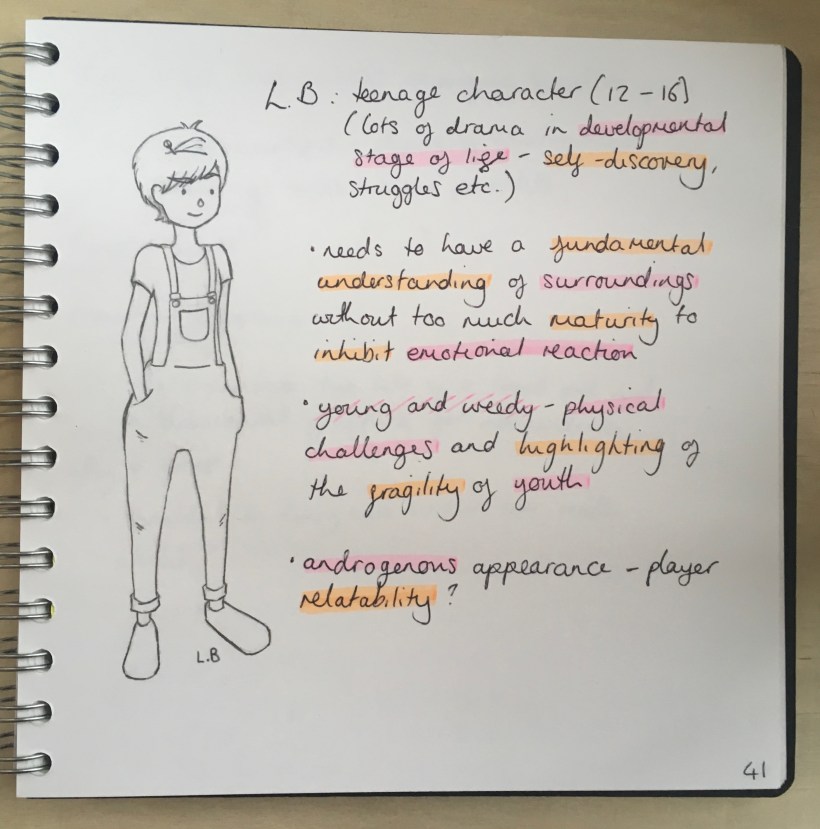 L.B : teenage character (12 - 16)
(lots of drama in developmental
stage of life - self-discovery,
struggles etc.)
• needs to have a fundamental
understanding of surroundings
without too much maturity to
inhibit emotional reaction
• young and weedy - physical
challenges and highlighting of
the fragility of youth
• androgenous appearance - player
relatability?
L.B
41